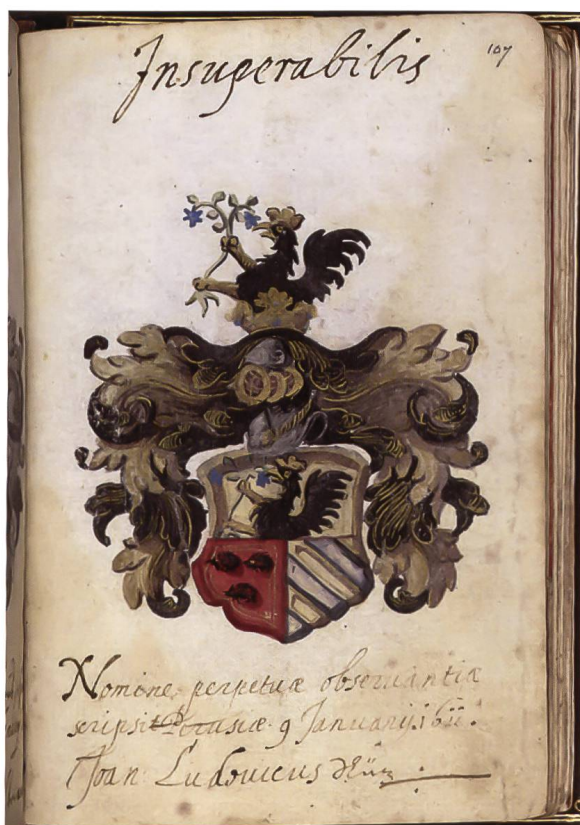 Insuperabilis 107
Nomine perpetuæ obseruantiæ
scripsit 9 Januarij 1611.
Joan: Ludouicus